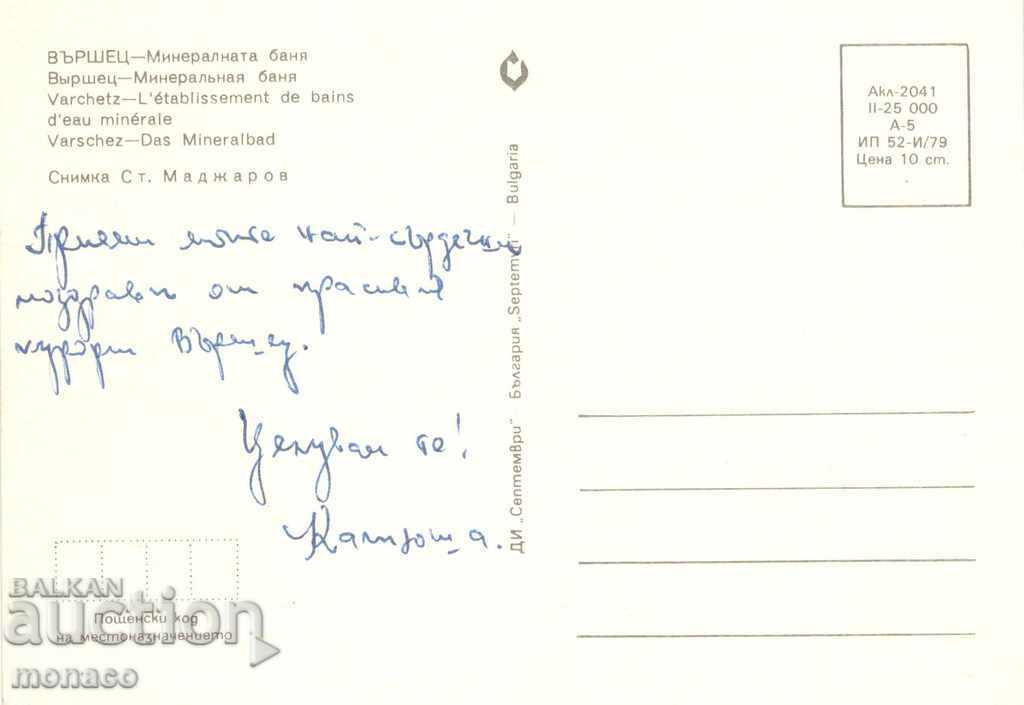 ВЪРШЕЦ—Минералната баня
Выршец—Минеральная баня
Varchetz—L'établissement de bains
d'eau minérale
Varschez—Das Mineralbad
Снимка Ст. Маджаров
Приеми моите най-сърдечни
поздрави от красивия
курорт Вършец.
Целувам те!
ДИ „Септември" — България „Septemvri" — Bulgaria
Акл-2041
II-25 000
А-5
ИП 52-И/79
Цена 10 ст.
Пощенски код
на местоназначението
BALKAN
auction
monaco